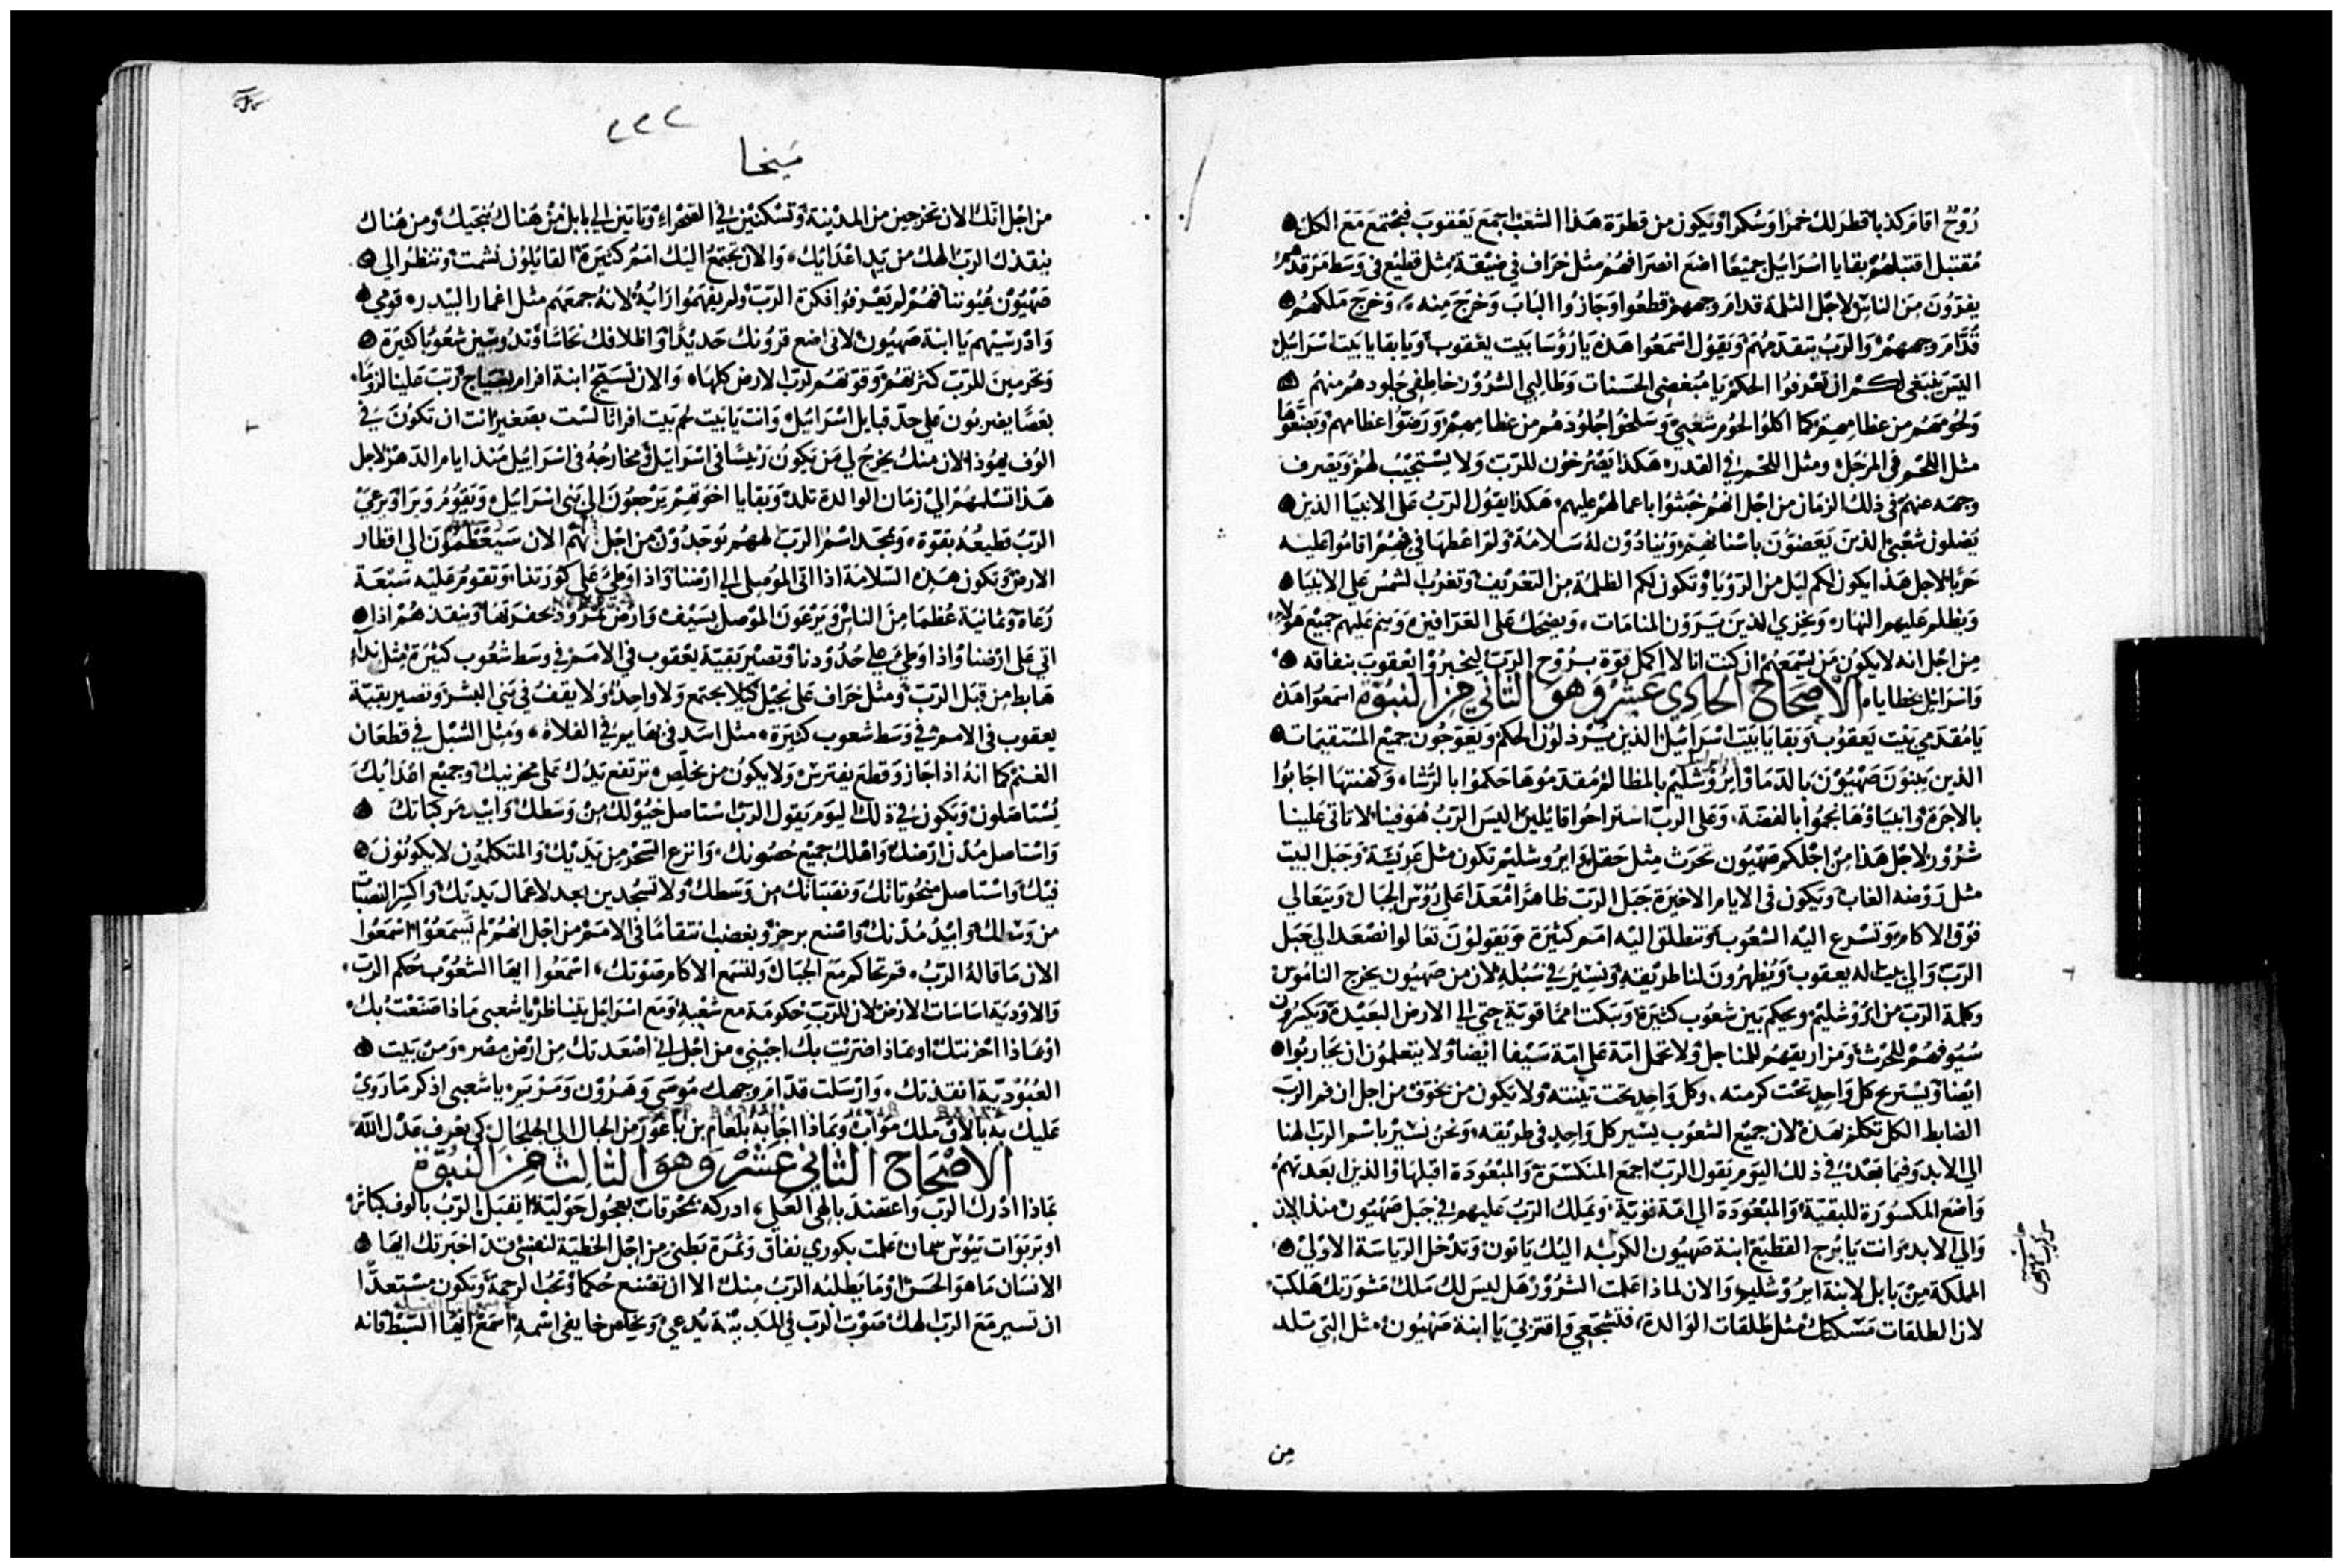 روح اقام كذبا قطر لك خمرا وسكرا ويكون من قطرة هذا الشعب اجمع يعقوب فيجتمع مع الكل
مقتبل اقتبلهم بقايا اسرائيل جميعا اضع انصرافهم مثل خراف في ضيقة مثل قطيع في وسط مرقدهم
يفزون من الناس لاجل الثلمة قدام وجههم قطعوا وجازوا الباب وخرج منه وخرج ملكهم
قدام وجههم والرب يتقدمهم ويقول اسمعوا هذه يا رؤسا بيت يعقوب ويا بقايا بيت اسرائيل
اليس ينبغي لكم ان تعرفوا الحكم يا مبغضي الحسنات وطالبي الشرور خاطفي جلودهم منهم
ولحومهم من عظامهم كما اكلوا لحوم شعبي وسلخوا جلودهم من عظامهم ورضوا عظامهم ويضعوها
مثل اللحم في المرجل ومثل اللحم في القدر هكذا يصرخون للرب ولا يستجيب لهم ويصرف
وجهه عنهم في ذلك الزمان من اجل انهم خبثوا باعمالهم عليهم هكذا يقول الرب على الانبيا الذين
يضلون شعبي الذين يعضون باسنانهم وينادون له سلامة ولم اعطها في فمهم اقاموا عليه
حربا لاجل هذا يكون لكم ليل من الرؤيا وتكون لكم الظلمة من التعريف وتغرب الشمس على الانبيا
ويظلم عليهم النهار ويخزي الذين يرون المنامات ويضحك على العرافين وينم عليهم جميع هولاء
من اجل انه لا يكون من يسمعهم ان كنت انا لا اكمل قوة بروح الرب ليخبروا يعقوب بنفاقه
واسرائيل بخطاياه الاصحاح الحادي عشر وهو الثاني من النبوة اسمعوا هذه
يا مقدمي بيت يعقوب وبقايا بيت اسرائيل الذين يرذلون الحكم ويعوجون جميع المستقيمات
الذين يبنون صهيون بالدما وايروشليم بالمظالم مقدموها حكموا بالرشا وكهنتها اجابوا
بالاجرة وانبياؤها نجموا بالفضة وعلى الرب استراحوا قائلين اليس الرب هو فينا لا تاتي علينا
شرور لاجل هذا من اجلكم صهيون تحرث مثل حقل وايروشليم تكون مثل عريشة وجبل البيت
مثل روضه الغاب ويكون في الايام الاخيرة جبل الرب ظاهرا معدا على رؤس الجبال ويتعالي
فوق الاكام وتسرع اليه الشعوب وتنطلق اليه امم كثيرة ويقولون تعالوا نصعد الي جبل
الرب والي بيت اله يعقوب ويظهرون لنا طريقه ونسير في سبله لان من صهيون يخرج الناموس
وكلمة الرب من ايروشليم ويحكم بين شعوب كثيرة ويبكت امما قوية حتي الي الارض البعيدة ويكسرون
سيوفهم للحرث ومزاريقهم للمناجل ولا تحمل امة على امة سيفا ايضا ولا يتعلمون ان يحاربوا
ايضا ويستريح كل واحد تحت كرمته وكل واحد تحت تينته ولا يكون من يخوف من اجل ان فم الرب
الضابط الكل تكلم بهذه لان جميع الشعوب يسير كل واحد في طريقه ونحن نسير باسم الرب الهنا
الي الابد وفيما بعد في ذلك اليوم يقول الرب اجمع المنكسرة والمبعودة اقبلها والذين ابعدتهم
واضع المكسورة للبقية والمبعودة الي امة قوية ويملك الرب عليهم في جبل صهيون منذ الان
والي الابد وانت يا برج القطيع ابنة صهيون الكربه اليك ياتون وتدخل الرياسة الاولي
المملكة من بابل لابنة ايروشليم والان لماذا علمت الشرور هل ليس لك ملك مشورتك هلكت
لان الطلقات مسكتك مثل طلقات الوالدة فتشجعي واقتربي يا ابنة صهيون مثل التي تلد
من
٢٢٢
ميخا
من اجل انك الان تخرجين من المدينة وتسكنين في الصحراء وتاتين الي بابل من هناك ينجيك ومن هناك
ينقذك الرب الهك من يد اعدائك والان تجتمع اليك امم كثيرة القائلون نشمت وتنظر الي
صهيون عيوننا فهم لم يعرفوا فكرة الرب ولم يفهموا رايه لانه جمعهم مثل اغمار البيدر قومي
وادرسيهم يا ابنة صهيون لاني اضع قرونك حديدا واظلافك نحاسا وتدوسين شعوبا كثيرة
وتحرمين للرب كثرتهم وقوتهم لرب الارض كلها والان تسيج ابنة افرام بسياج رتب علينا لزوما
بعصا يضربون على خد قبايل اسرائيل وانت يا بيت لحم بيت افراثا لست بصغير انت ان تكون في
الوف يهوذا لان منك يخرج لي من يكون رئيسا في اسرائيل ومخارجه في اسرائيل منذ ايام الدهر لاجل
هذا تسلمهم الي زمان الوالدة تلد وبقايا اخوتهم يرجعون الي بني اسرائيل ويقوم ويرا ويرعي
الرب قطيعه بقوة وبمجد اسم الرب الههم يوجدون من اجل انهم الان سيعظمون الي اقطار
الارض وتكون هذه السلامة اذا اتي الموصلي الي ارضنا واذا وطئ على كورتنا وتقوم عليه سبعة
رعاة وثمانية عظما من الناس ويرعون الموصل بسيف وارض نمرود بحفرتها وينقذهم اذا
اتي على ارضنا واذا وطئ على حدودنا وتصير بقية يعقوب في الامم في وسط شعوب كثيرة مثل نداء
هابط من قبل الرب ومثل خراف على نجيل كيلا يجتمع ولا واحد ولا يقف في بني البشر وتصير بقية
يعقوب في الامم في وسط شعوب كثيرة مثل اسد في بهايم في الفلاة ومثل الشبل في قطعان
الغنم كما انه اذا جاز وقطع يفترس ولا يكون من يخلص ترتفع يدك على محزنيك وجميع اعدايك
يستاصلون ويكون في ذلك اليوم يقول الرب استاصل خيولك من وسطك وابيد مركباتك
واستاصل مدن ارضك واهلك جميع حصونك وانزع السحر من يديك والمتكلمون لا يكونون
فيك واستاصل منحوتاتك ونصباتك من وسطك ولا تسجدين بعد لاعمال يديك واكسر النصبات
من وسطك وابيد مدنك واصنع برجز وبغضب انتقاما في الامم من اجل انهم لم يسمعوا اسمعوا
الان ما قاله الرب قم تحاكم مع الجبال ولتسمع الاكام صوتك اسمعوا ايها الشعوب حكم الرب
والاودية اساسات الارض لان للرب حكومة مع شعبه ومع اسرائيل يتناظر يا شعبي ماذا صنعت بك
او بماذا احزنتك او بماذا اضريت بك اجبني من اجل اني اصعدتك من ارض مصر ومن بيت
العبودية انقذتك وارسلت قدام وجهك موسي وهرون ومريم يا شعبي اذكر ما روي
عليك به بالاق ملك مواب وبماذا اجابه بلعام بن باعور من الحبال الي الجلجال كي يعرف عدل الله
الاصحاح الثاني عشر وهو الثالث من النبوة
بماذا ادرك الرب واعتضد بالهي العلي ادركه بمحرقات بعجول حولية ايقبل الرب بالوف كباش
او بربوات تيوس سمان علمت بكوري نفاق وثمرة بطني من اجل الخطية لنفسي قد اخبرتك ايها
الانسان ما هو الحسن او ما يطلبه الرب منك الا ان تصنع حكما وتحب الرحمة وتكون مستعدا
ان تسير مع الرب الهك صوت الرب في المدينة يدعي ويخلص خايفي اسمه اسمع ايها السبط فانه